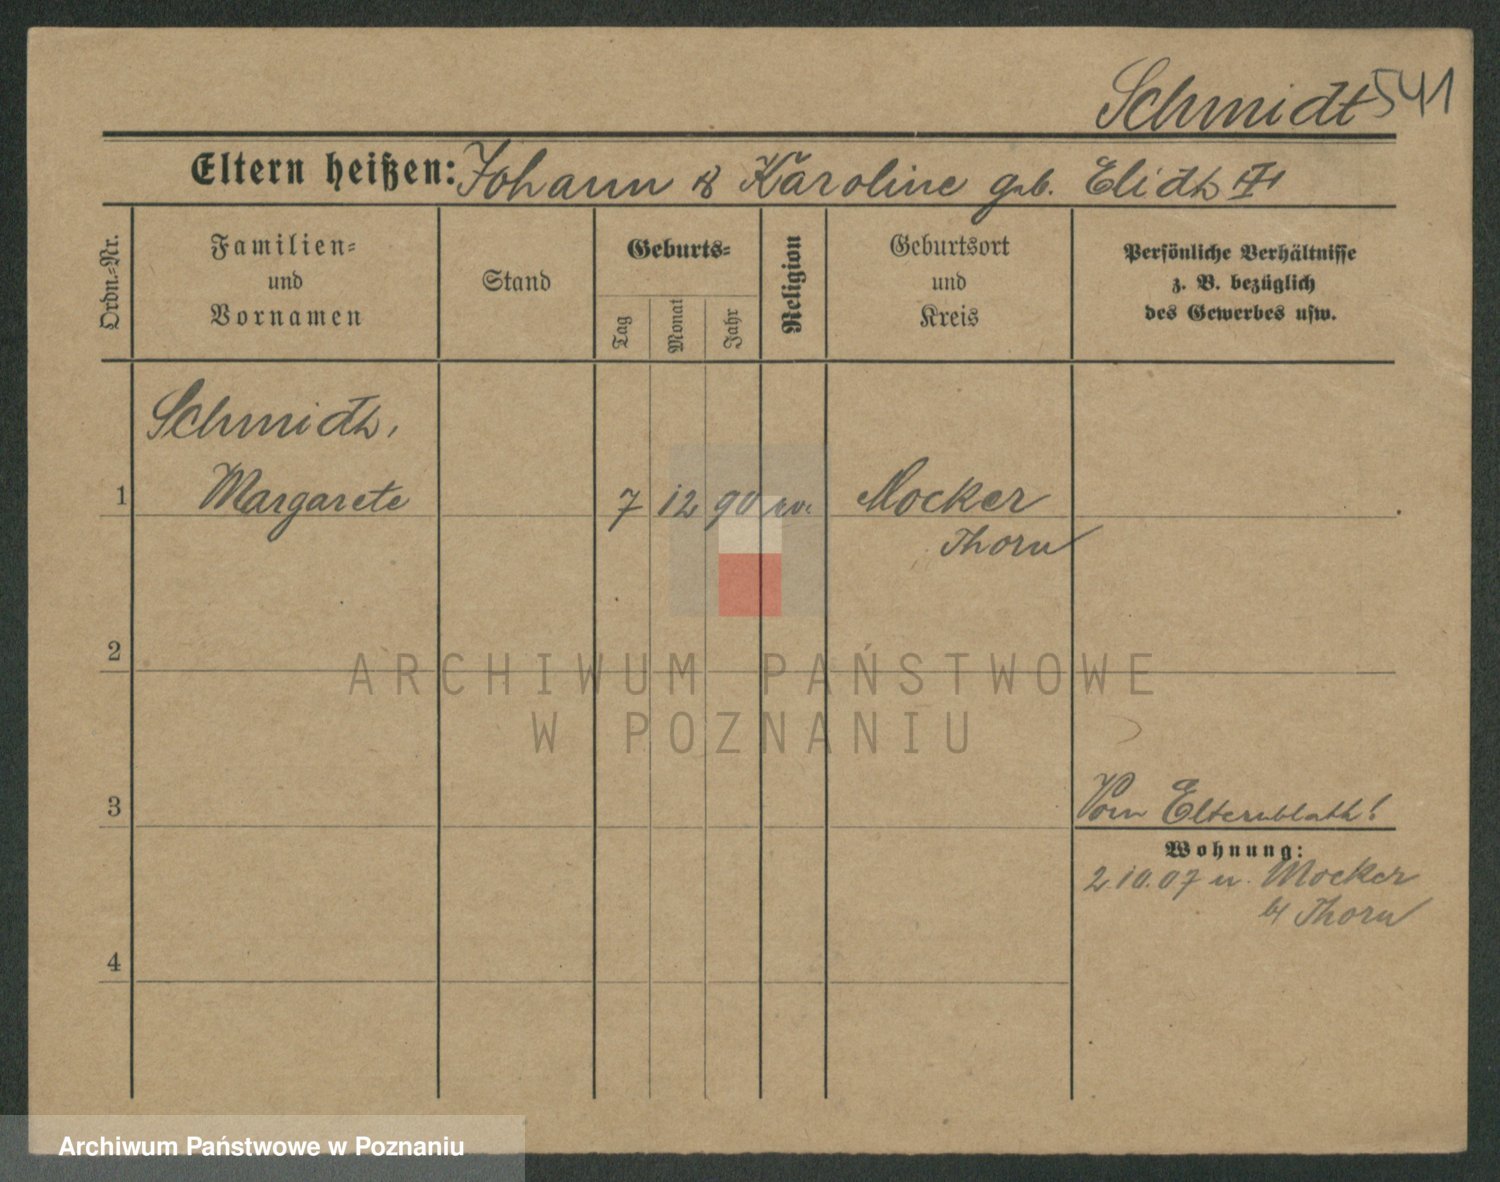 Schmidt 541
Eltern heißen: Johann & Karoline geb.
Ordn.=Nr.
Familien=
und
Vornamen
Stand
Geburts=
Tag
Monat
Jahr
Religion
Geburtsort
und
Kreis
Persönliche Verhältnisse
z. B. bezüglich
des Gewerbes usw.
Schmidt,
1 Margarete 7 12 90 ev. Mocker
Thorn
2
ARCHIWUM PAŃSTWOWE
W POZNANIU
3
Vom Elternblatt!
Wohnung:
2.10.07 n. Mocker
b/ Thorn
4
Archiwum Państwowe w Poznaniu